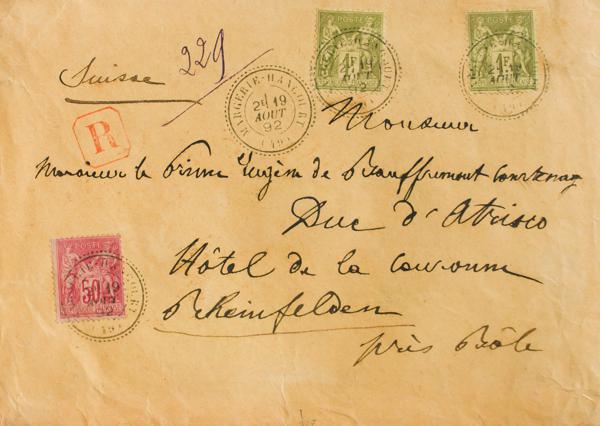 229
Suisse
R
POSTE
1F
POSTE
1F
MARGERIE-HANCOURT
2E 19
AOUT
92
(49)
Monsieur
Monsieur le Prince Eugène de Bauffremont Courtenay
Duc d'Atrisco
Hôtel de la Couronne
Rheinfelden
près Bâle
POSTE
50